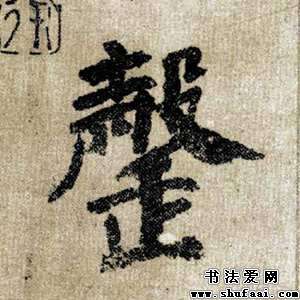 罄
书法爱网
www.shufaai.com